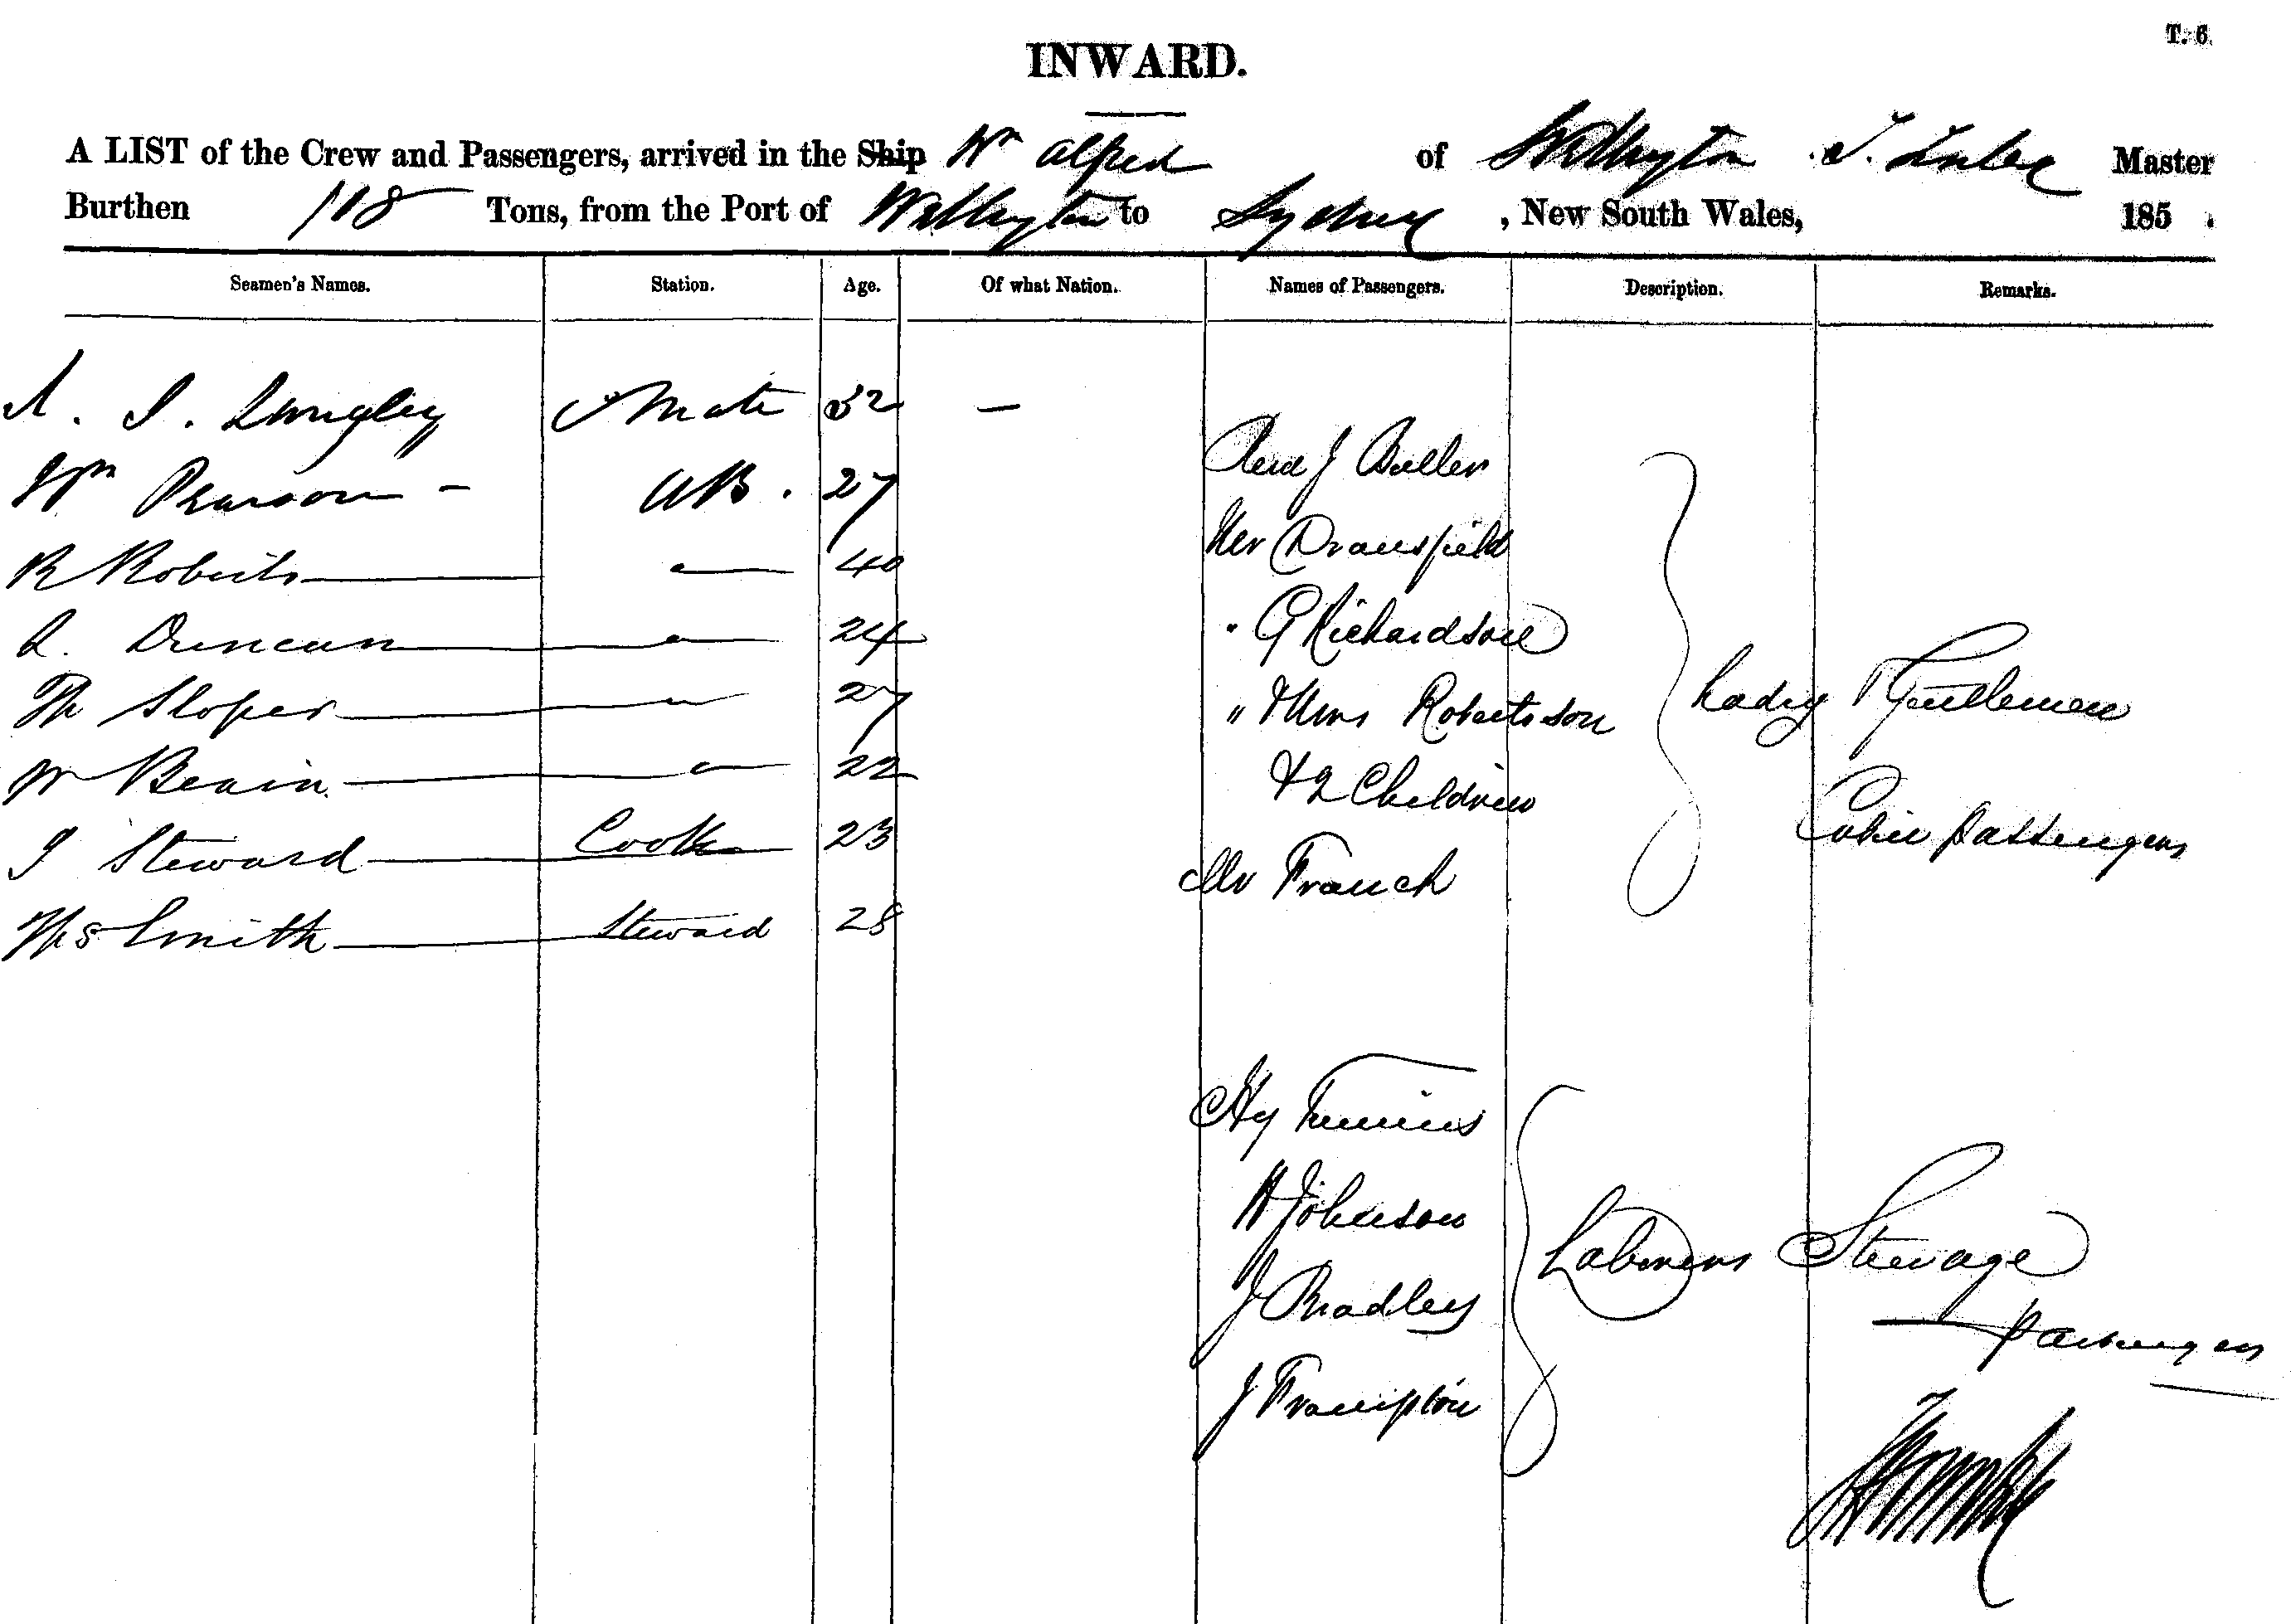 T. 6.
INWARD.
A LIST of the Crew and Passengers, arrived in the Ship Wm Alfred of Wellington J. Master
Burthen 118 Tons, from the Port of Wellington to Sydney, New South Wales, 185 .
Seamen's Names. Station. Age. Of what Nation. Names of Passengers. Description. Remarks.
A. J. Langley Mate 32 —
Revd J Buller
Wm Pearson - AB. 27
Mr Dransfield
R Roberts 40
A. Duncan 24
" G Richardson
Th Sloper 27
" & Mrs Robertson
Lady & Gentlemen
W 22
& 2 Children
Cabin passengers
J Steward Cook 23
Mr Franch
Ths Smith Steward 28
Hy
H Johnson
Labourers Steerage
J Bradley
passengers
J Frampton